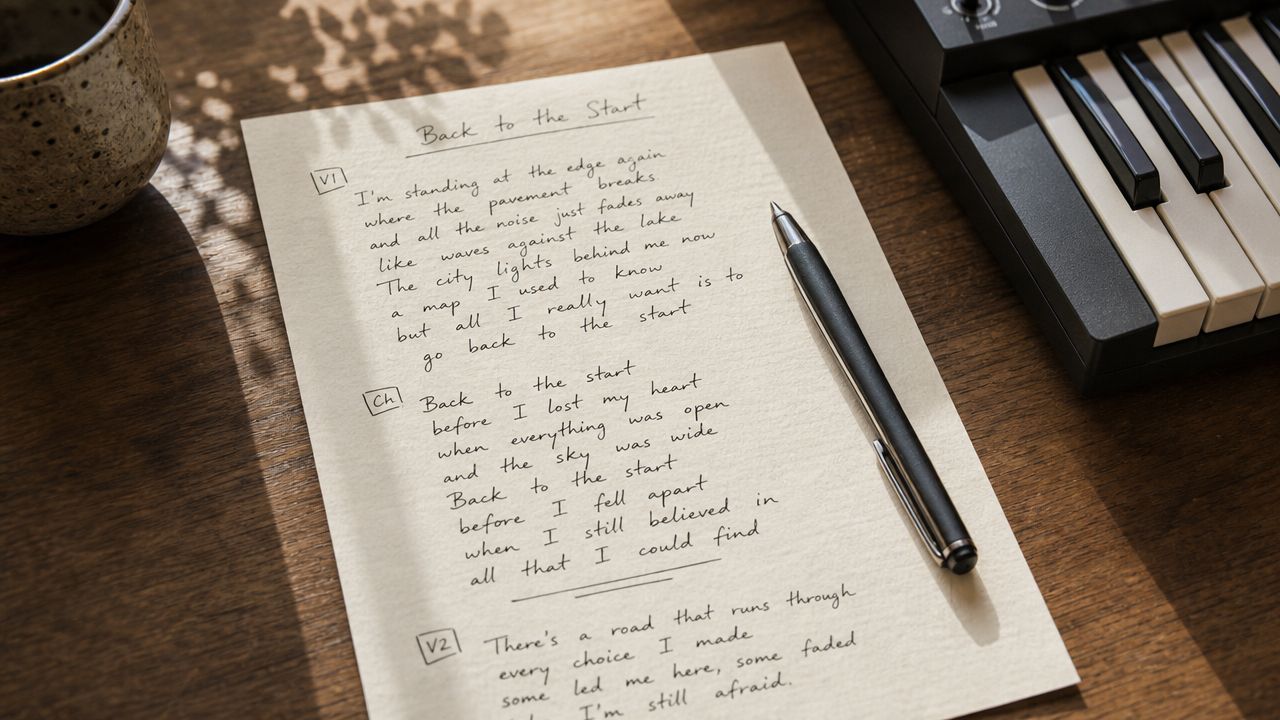 Back to the Start
V1
I'm standing at the edge again
where the pavement breaks
and all the noise just fades away
like waves against the lake
The city lights behind me now
a map I used to know
but all I really want is to
go back to the start
Ch
Back to the start
before I lost my heart
when everything was open
and the sky was wide
Back to the start
before I fell apart
when I still believed in
all that I could find
V2
There's a road that runs through
every choice I made
some led me here, some faded
I'm still afraid.